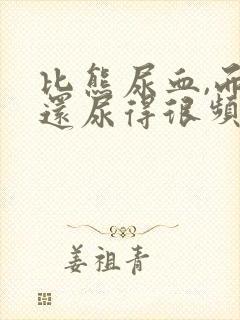 比熊尿血,而
還尿得很頻
姜祖青